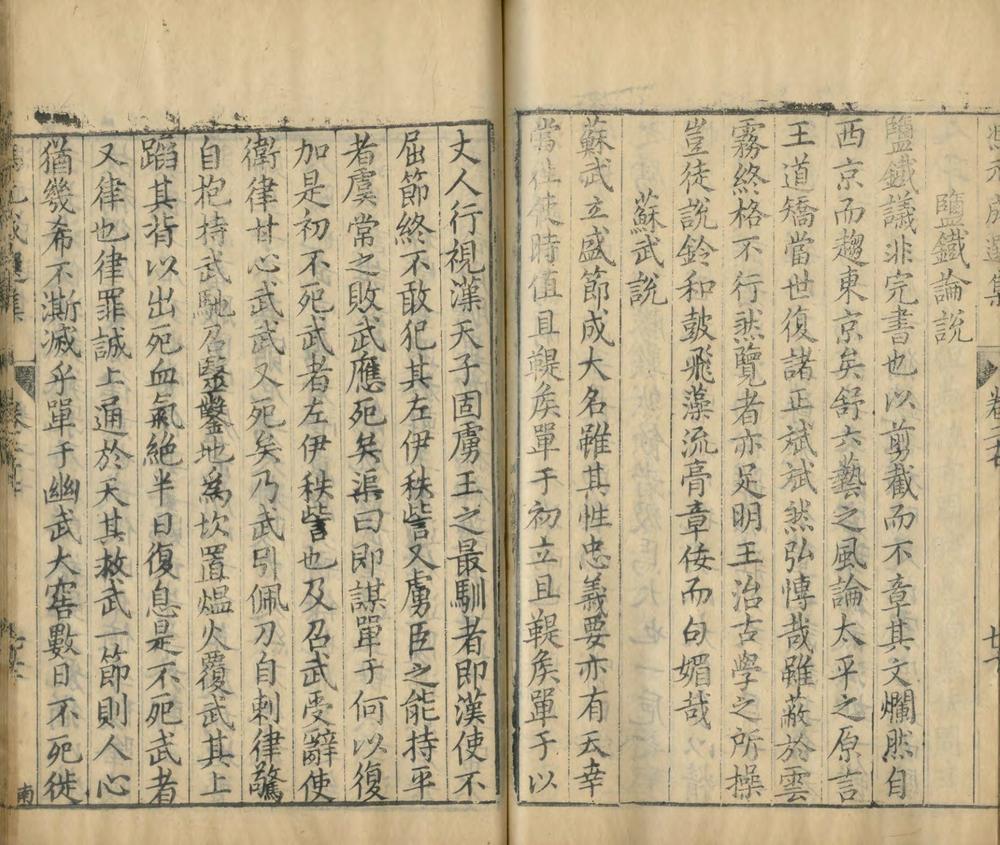 鹽鐵論說
鹽鐵議非完書也以剪截而不章其文爛然自
西京而趨東京矣舒六藝之風論太平之原言
王道矯當世復諸正斌斌然弘博哉雖蔽於雲
霧終格不行然覽者亦足明王治古學之所操
豈徒說鈴和鼓飛藻流膏章佞而句媚哉
蘇武說
蘇武立盛節成大名雖其性忠義要亦有天幸
當往使時值且鞮矦單于初立且鞮矦單于以
丈人行視漢天子固虜王之最馴者即漢使不
屈節終不敢犯其左伊秩訾又虜臣之能持平
者虞常之敗武應死矣渠曰即謀單于何以復
加是初不死武者左伊秩訾也及召武受辭使
衛律甘心武武又死矣乃武引佩刀自刺律驚
自抱持武馳召毉鑿地為坎置煴火覆武其上
蹈其背以出死血氣絕半日復息是不死武者
又律也律罪誠上通於天其救武一節則人心
猶幾希不澌滅乎單于幽武大窖數日不死徙
卷
南